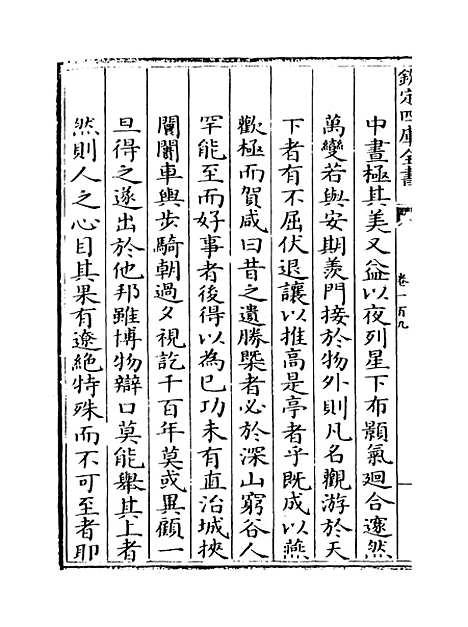 欽定四庫全書
卷一百九
中晝極其美又益以夜列星下布顥氣迴合邃然
萬變若與安期羨門接於物外則凡名觀游於天
下者有不屈伏退讓以推高是亭者乎既成以燕
歡極而賀咸曰昔之遺勝槩者必於深山窮谷人
罕能至而好事者後得以為已功未有直治城挾
闤闠車輿步騎朝過夕視訖千百年莫或異顧一
旦得之遂出於他邦雖博物辯口莫能舉其上者
然則人之心目其果有遼絶特殊而不可至者耶